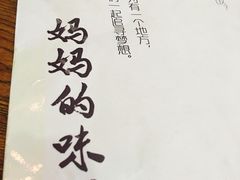 有一个地方，
一起追寻梦想。
妈妈的味